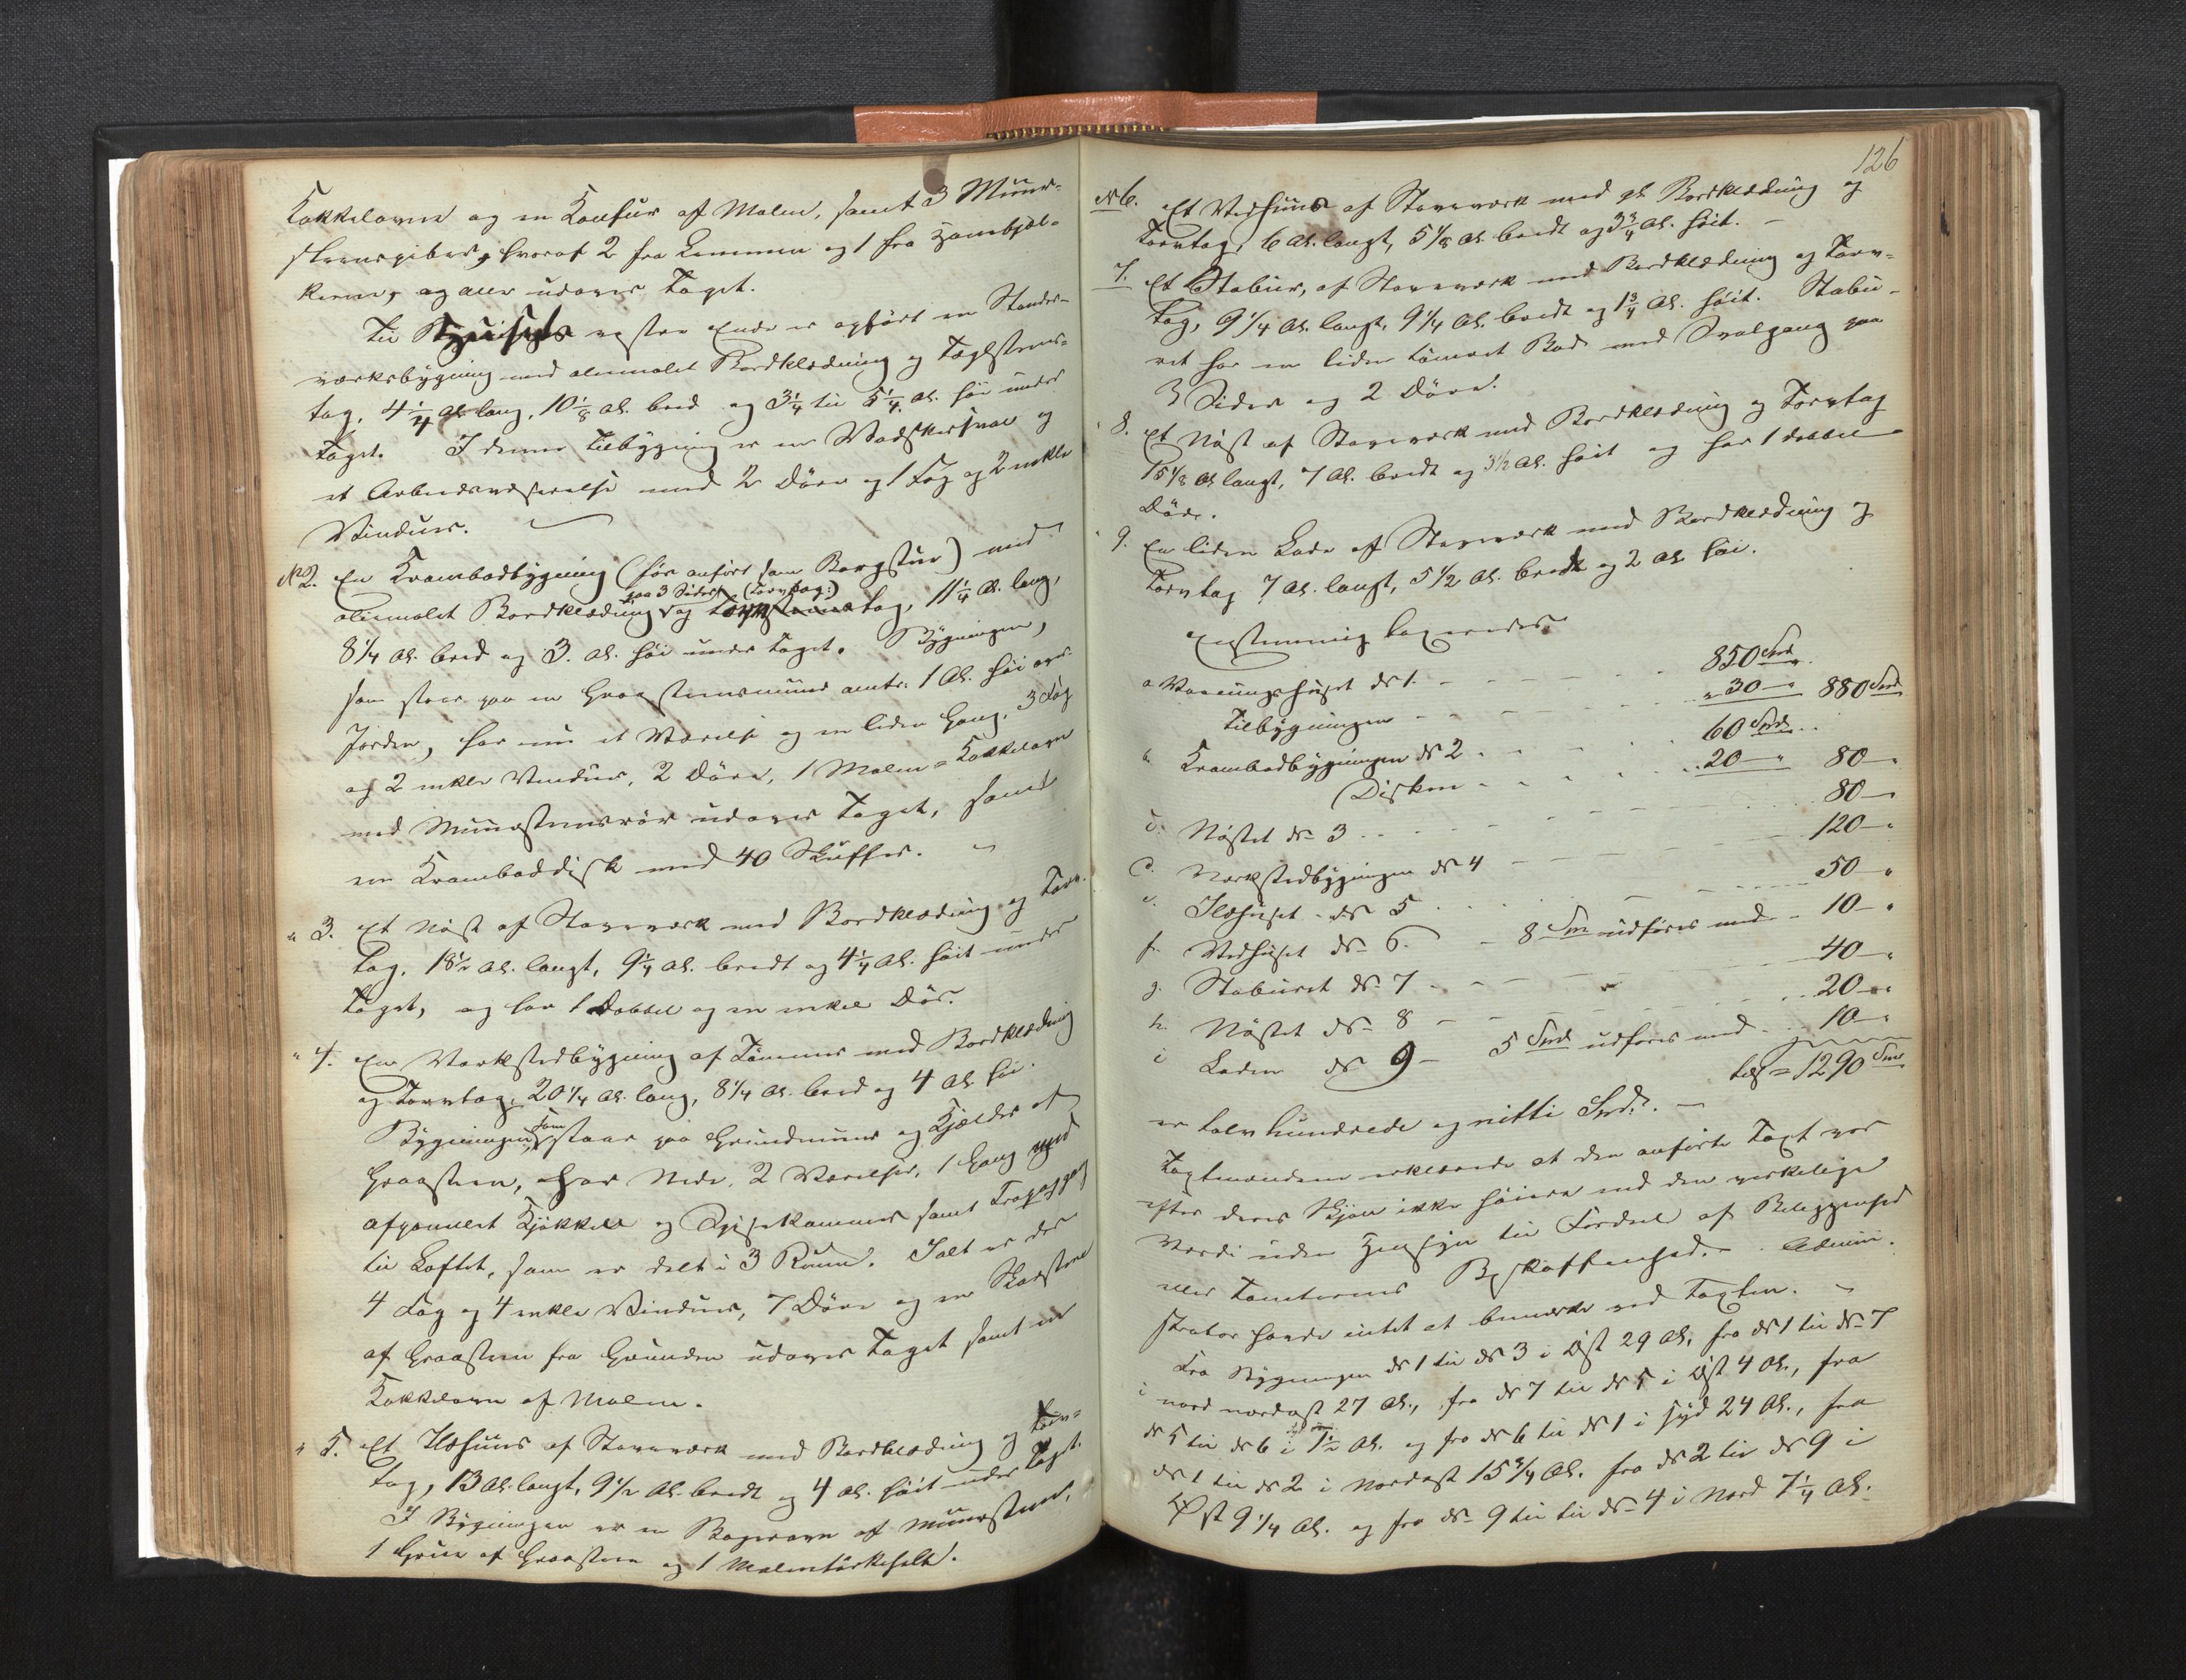 Kakkelovne og en Konfur af Malm, samt 3 Muur-
steenspiber, hvoraf 2 fra Lemmen og 1 fra Hanebjæl-
kerne, og alle udover Taget.
Til Huusets vestre Ende er opført en Stander-
værksbygning med oliemalet Bordklædning og Taglsteens-
tag, 4 1/4 Al. lang, 10 1/8 Al. bred og 3 1/4 til 5 1/4 Al. høi under
Taget. I denne Tilbygning er en Vadskersval og
et Arbeidsværelse med 2 Døre og 1 Fag og 2 enkle
Vinduer.
No 2. En Krambodbygning (før anført som Borgstue) med
paa 3 Sider (Torvtag:)
oliemalet Bordklædning og tag, 11 1/4 Al. lang,
8 1/4 Al. bred og 3. Al. høi under Taget. Bygningen,
som staar paa en Graasteensmuur omtr. 1 Al. høi over
Jorden, har nu et Værelse og en liden Gang, 3 Fag
og 2 enkle Vinduer, 2 Døre, 1 Malm-Kakkelovn
med Muursteensrør udover Taget, samt
en Kramboddisk med 40 Skuffer.
" 3. Et Nøst af Stavværk med Bordklædning og Torv-
tag, 18 1/2 Al. langt, 9 1/4 Al. bredt og 4 1/4 Al. høit under
Taget, og har 1 Dobbel og en enkel Dør.
" 4. En Værkstedbygning af Tømmer med Bordklædning
og Torvtag, 20 1/4 Al. lang, 8 1/4 Al. bred og 4 Al. høi.
som
Bygningen, staar paa Grundmuur og Kjælder af
Graasteen, har Nede, 2 Værelser, 1 Gang med
afpanelet Kjøkken og Spisekammer samt Trapopgang
til Loftet, som er delt i 3 Rum. Ialt er der
4 Fag og 4 enkle Vinduer, 7 Døre og en Skorsteen
af Graasteen fra Grunden udover Taget samt en
Kakkelovn af Malm.
" 5. Et Ildhuus af Stavværk med Bordklædning og Torv-
tag, 13 Al. langt, 9 1/2 Al. bredt og 4 Al. høit under Taget.
I Bygningen er en Bagerovn af Muursteen,
1 Grue af Graasteen og 1 Malmtørkehelle.
126
No 6. Et Vedhuus af Stavværk med gl. Bordklædning og
Torvtag, 6 Al. langt, 5 1/8 Al. bredt og 3 3/4 Al. høit. -
7. Et Stabuur, af Stavværk med Bordklædning og Torv-
tag, 9 1/4 Al. langt, 9 1/4 Al. bredt og 1 3/4 Al. høit. Stabu-
ret har en liden tømret Bod med Svalgang paa
3 Sider og 2 Døre.
8. Et Nøst af Stavværk med Bordklædning og Torvtag
15 1/8 Al. langt, 7 Al. bredt og 3 1/2 Al. høit og har 1 dobbel
Dør.
9. En liden Lade af Stavværk med Bordklædning og
Torvtag 7 Al. langt, 5 1/2 Al. bredt og 2 Al. høi.
Eenstemmig taxeredes
a Vaaningshuset No 1. - - - 850 Spd
Tilbygningen - - - " 30 - " 880 Spd
b. Krambodbygningen No 2 - - - 60 Spd
Disken - - - 20 - " 80 - "
c. Nøstet No 3 - - - 80 - "
d. Værkstedbygningen No 4 - - - 120 - "
e. Ildhuset - No 5 - - - 50 - "
f. Vedhuset No 6. - 8 Spd udføres med - 10 - "
g. Staburet No 7 - - - 40 - "
h. Nøstet No 8 - - - 20 - "
i Laden No 9 - 5 Spd udføres med - 10 - "
Tilsammen 1290 Spd
er tolv hundrede og nitti Spd. -
Taxtmændene erklærede at den anførte Taxt var
efter deres Skjøn ikke høiere end den virkelige
Værdi uden Hensyn til Fordeel af Beliggenhed
eller Tomternes Beskaffenhed. - Admini-
strator havde intet at bemærke ved Taxten. -
Fra Bygningen No 1 til No 3 i Øst 29 Al, fra No 1 til No 7
i nord nordost 27 Al., fra No 7 til No 5 i Øst 4 Al., fra
No 5 til No 6 i 1 1/2 Al. og fra No 6 til No 1 i syd 24 Al., fra
No 1 til No 2 i Nordost 15 3/4 Al. fra No 2 til No 9 i
Øst 9 1/4 Al. og fra No 9 til til No 4 i Nord 7 1/4 Al.